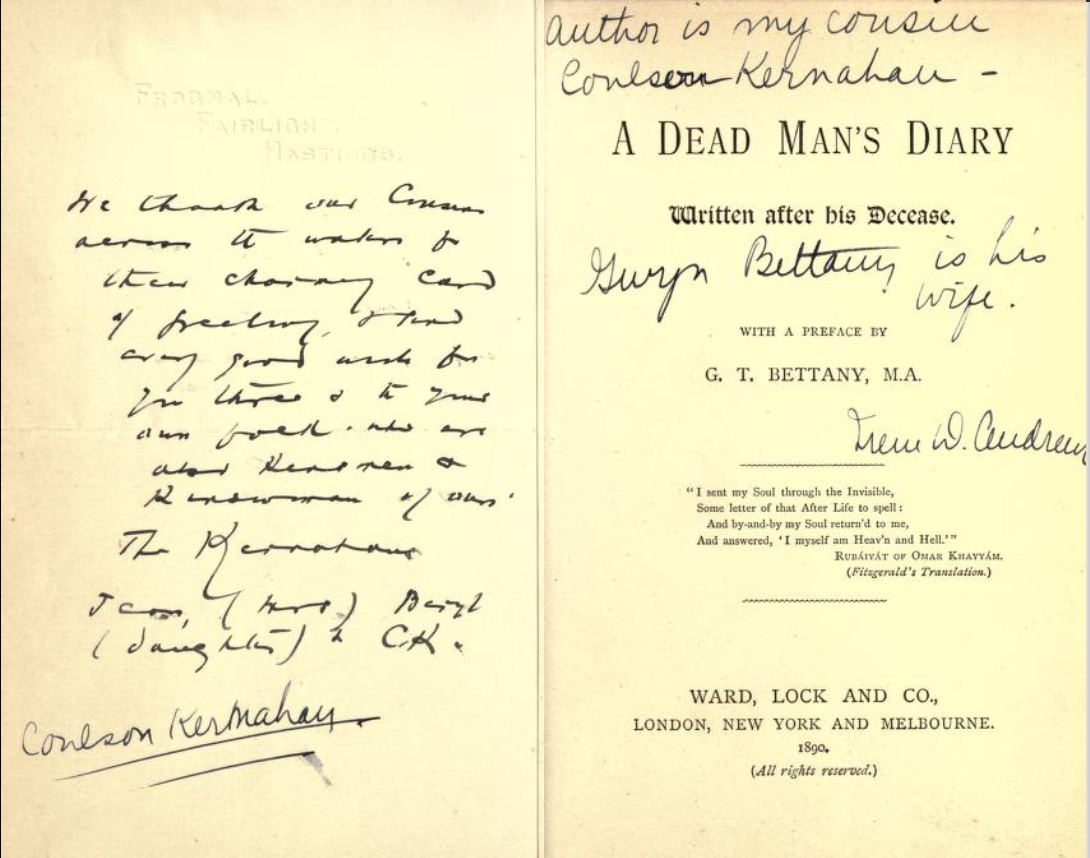 FROGNAL,
FAIRLIGHT,
HASTINGS.
We thank our Cousins
across the waters for
their charming Card
of greeting, & send
every good wish for
you three & to your
own folk who are
also Kinsmen &
Kinswoman of ours.
The Kernahans
(Mrs) Beryl
(daughter) & C.K.
Coulson Kernahan
Author is my cousin
Coulson Kernahan –
A DEAD MAN'S DIARY
Written after his Decease.
Gwyn Bettany is his
wife.
WITH A PREFACE BY
G. T. BETTANY, M.A.
Irene W. Andrew
"I sent my Soul through the Invisible,
Some letter of that After Life to spell:
And by-and-by my Soul return'd to me,
And answered, 'I myself am Heav'n and Hell.'"
RUBÁIYÁT OF OMAR KHAYYÁM.
(Fitzgerald's Translation.)
WARD, LOCK AND CO.,
LONDON, NEW YORK AND MELBOURNE.
1890.
(All rights reserved.)